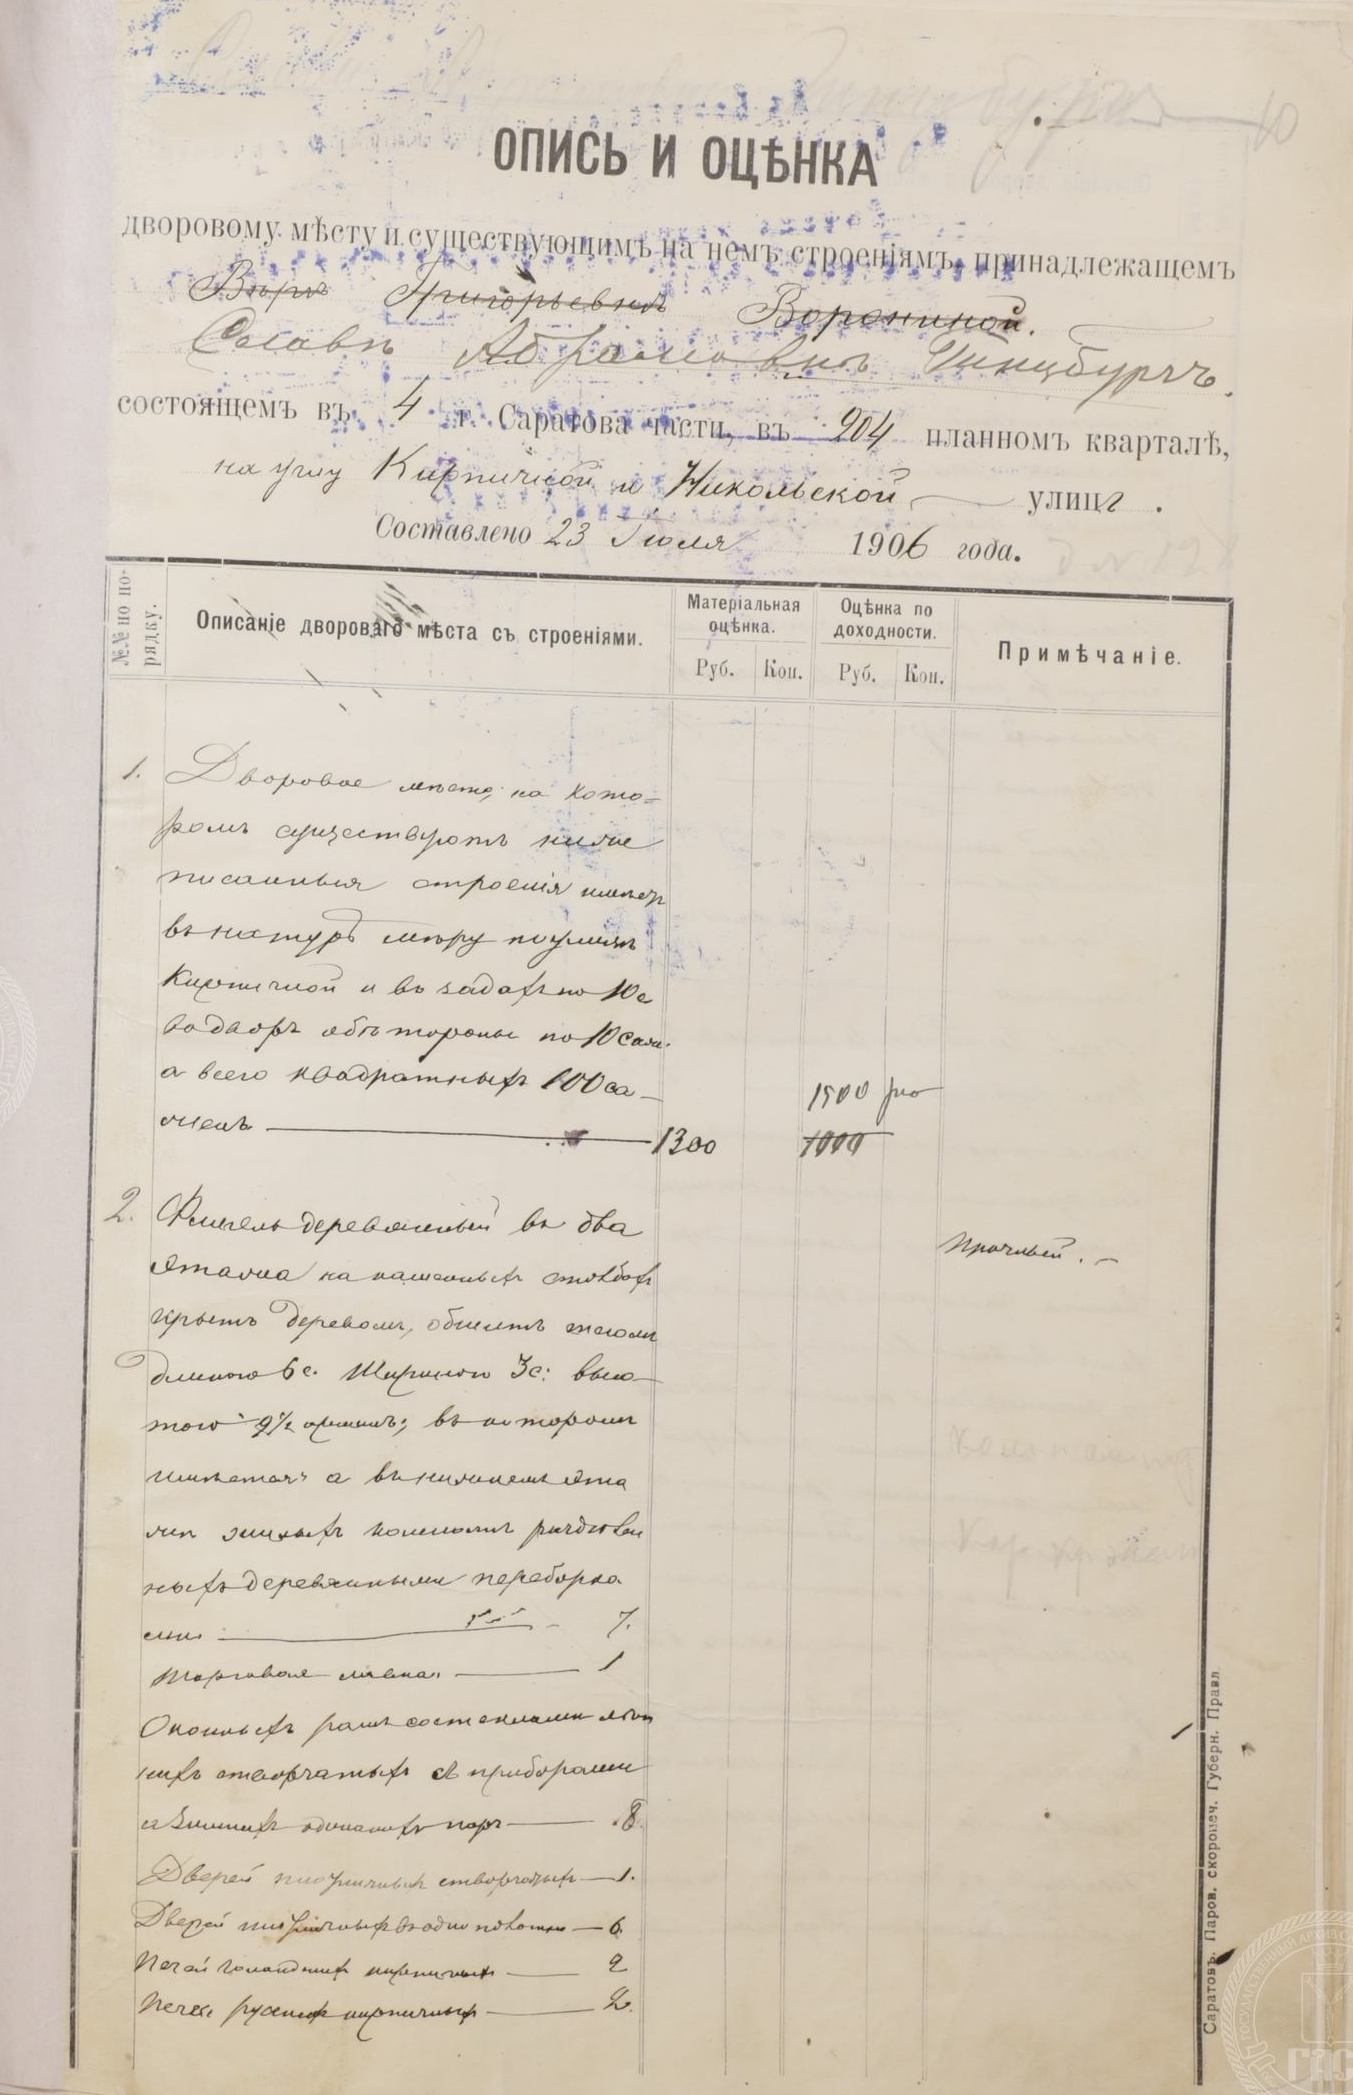 ОПИСЬ И ОЦѢНКА
дворовому мѣсту и существующимъ на немъ строеніямъ, принадлежащемъ
Вѣрѣ Григорьевнѣ Ворониной.
Абрамовнѣ Гинцбургъ.
состоящемъ въ 4 г. Саратова части, въ 204 планномъ кварталѣ,
на углу Кирпичной и Никольской улицъ.
Составлено 23 Іюля 1906 года.
№№ по порядку.
Описаніе двороваго мѣста съ строеніями.
Матеріальная оцѣнка.
Оцѣнка по доходности.
Примѣчаніе.
Руб. Коп. Руб. Коп.
1. Дворовое место, на кото=
ромъ существуютъ ниже
писанныя строенія имеетъ
въ натурѣ мѣру по улицѣ
Кирпичной и въ задахъ по 10 с
во дворъ обѣ стороны по 10 саж.
а всего квадратныхъ 100 са-
женъ 1300
1500
1000
2. Флигель деревянный въ два
этажа на каменныхъ столбахъ
крытъ деревомъ, обшитъ тесомъ
длиною 6 с. шириною 3 с. высо-
тою 9½ аршинъ; въ которомъ
имѣется а въ нижнемъ эта
жѣ жилыхъ комнатъ раздѣлен
ныхъ деревянными переборка
ми 7.
торговая лавка 1
Оконныхъ рамъ со стеклами лѣт
нихъ створчатыхъ съ приборами
и зимнихъ одинакихъ паръ 8.
Дверей створчатыхъ 1.
Дверей 6.
Печей голандскихъ кирпичныхъ 2
Печей русскихъ кирпичныхъ 2.
Прочный.
Саратовъ. Паров. скоропеч. Губерн. Правл.